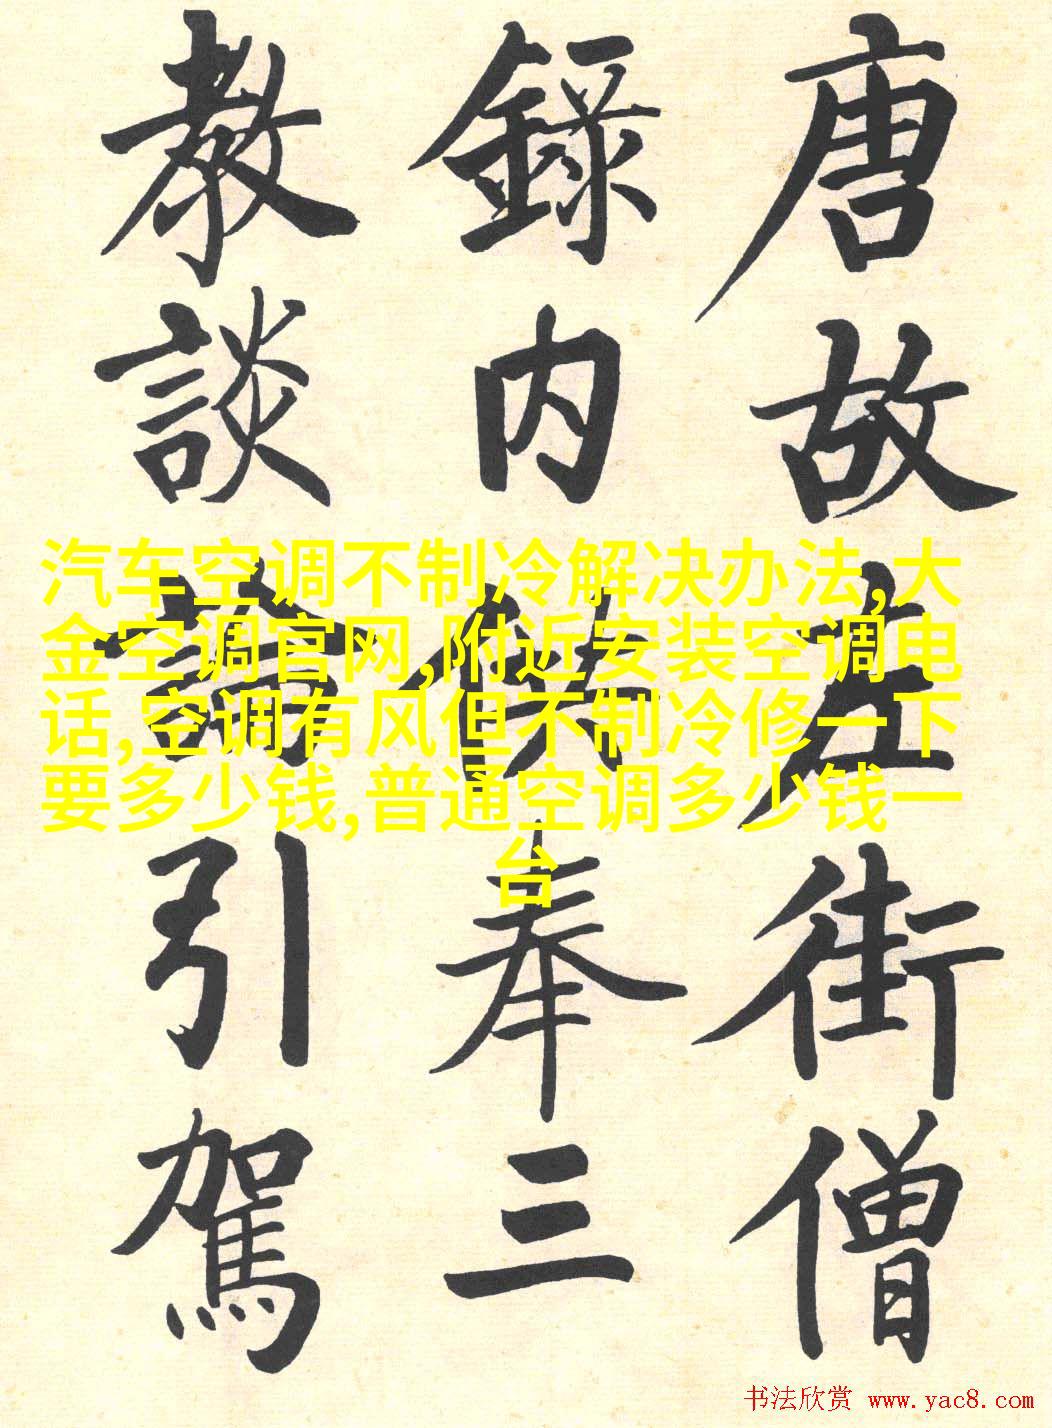 唐故左街僧
錄内供奉三
教談論引駕
汽车空调不制冷解决办法,大
金空调官网,附近安装空调电
话,空调有风但不制冷修一下
要多少钱,普通空调多少钱一
台
书法欣赏 www.yac8.com